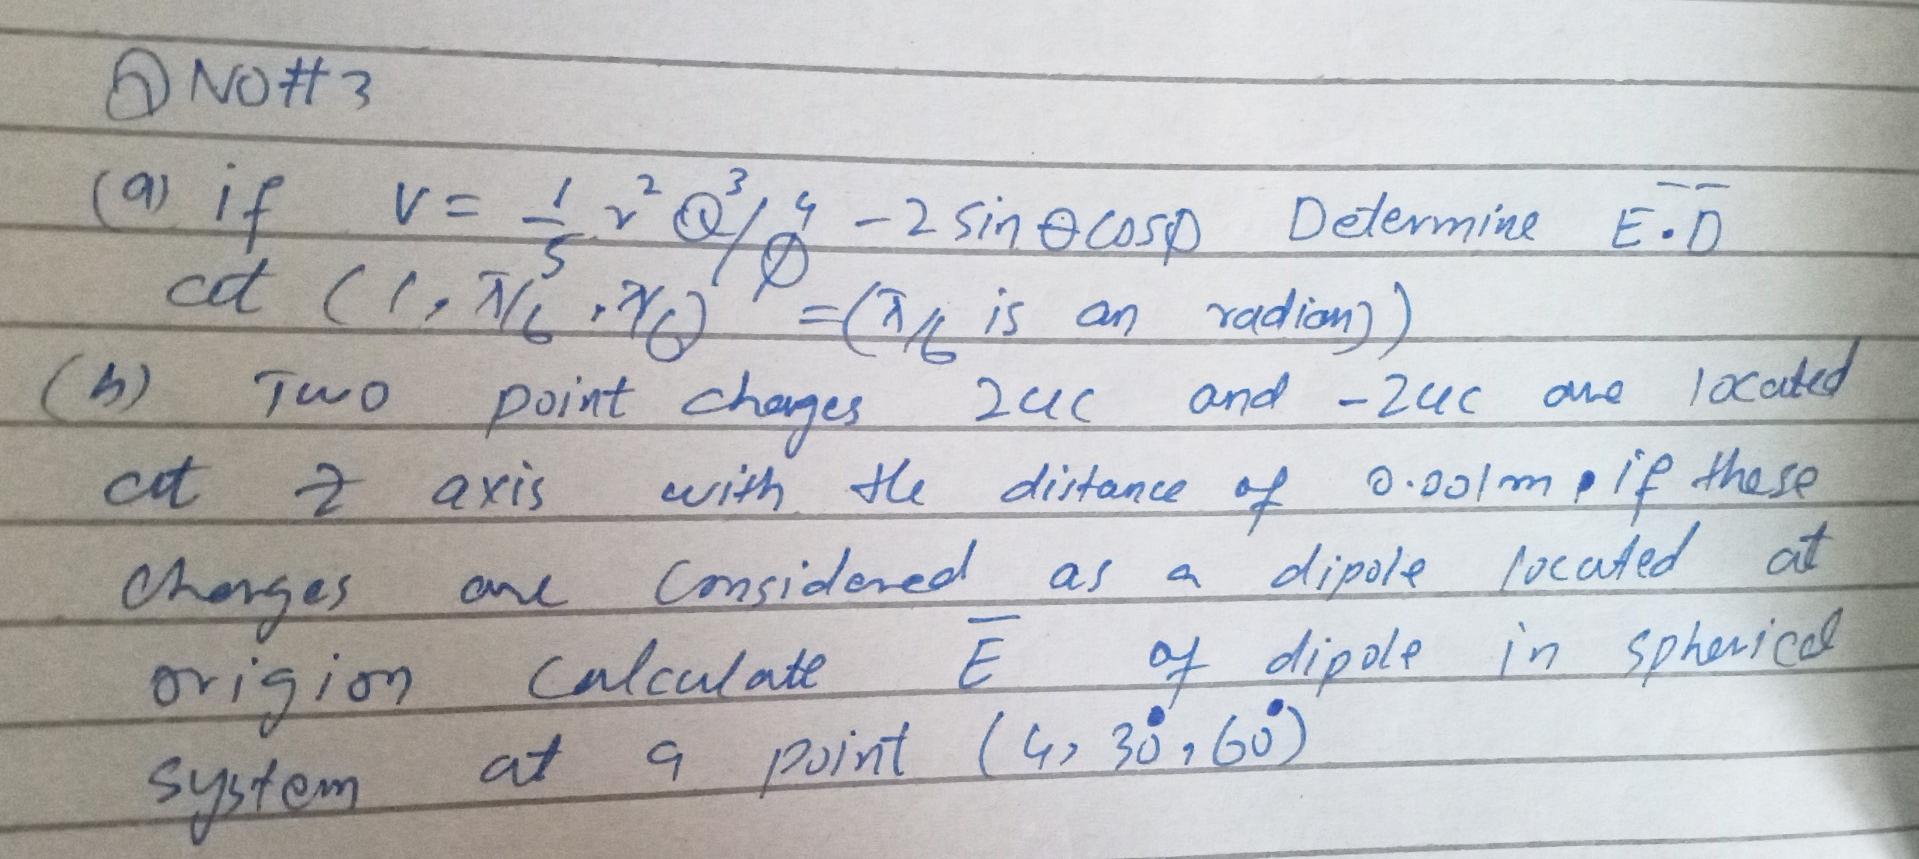 Q NO#3
(a) if V = 1/5 r² θ³/φ⁴ - 2 sin θ cosφ Determine E̅.D̅
at (1, π/6, π/6) = (π/6 is an radian))
(b) Two point charges 2uc and -2uc are located
at z axis with the distance of 0.001m, if these
charges are Considered as a dipole located at
origion Calculate E̅ of dipole in spherical
system at a point (4, 30°, 60°)